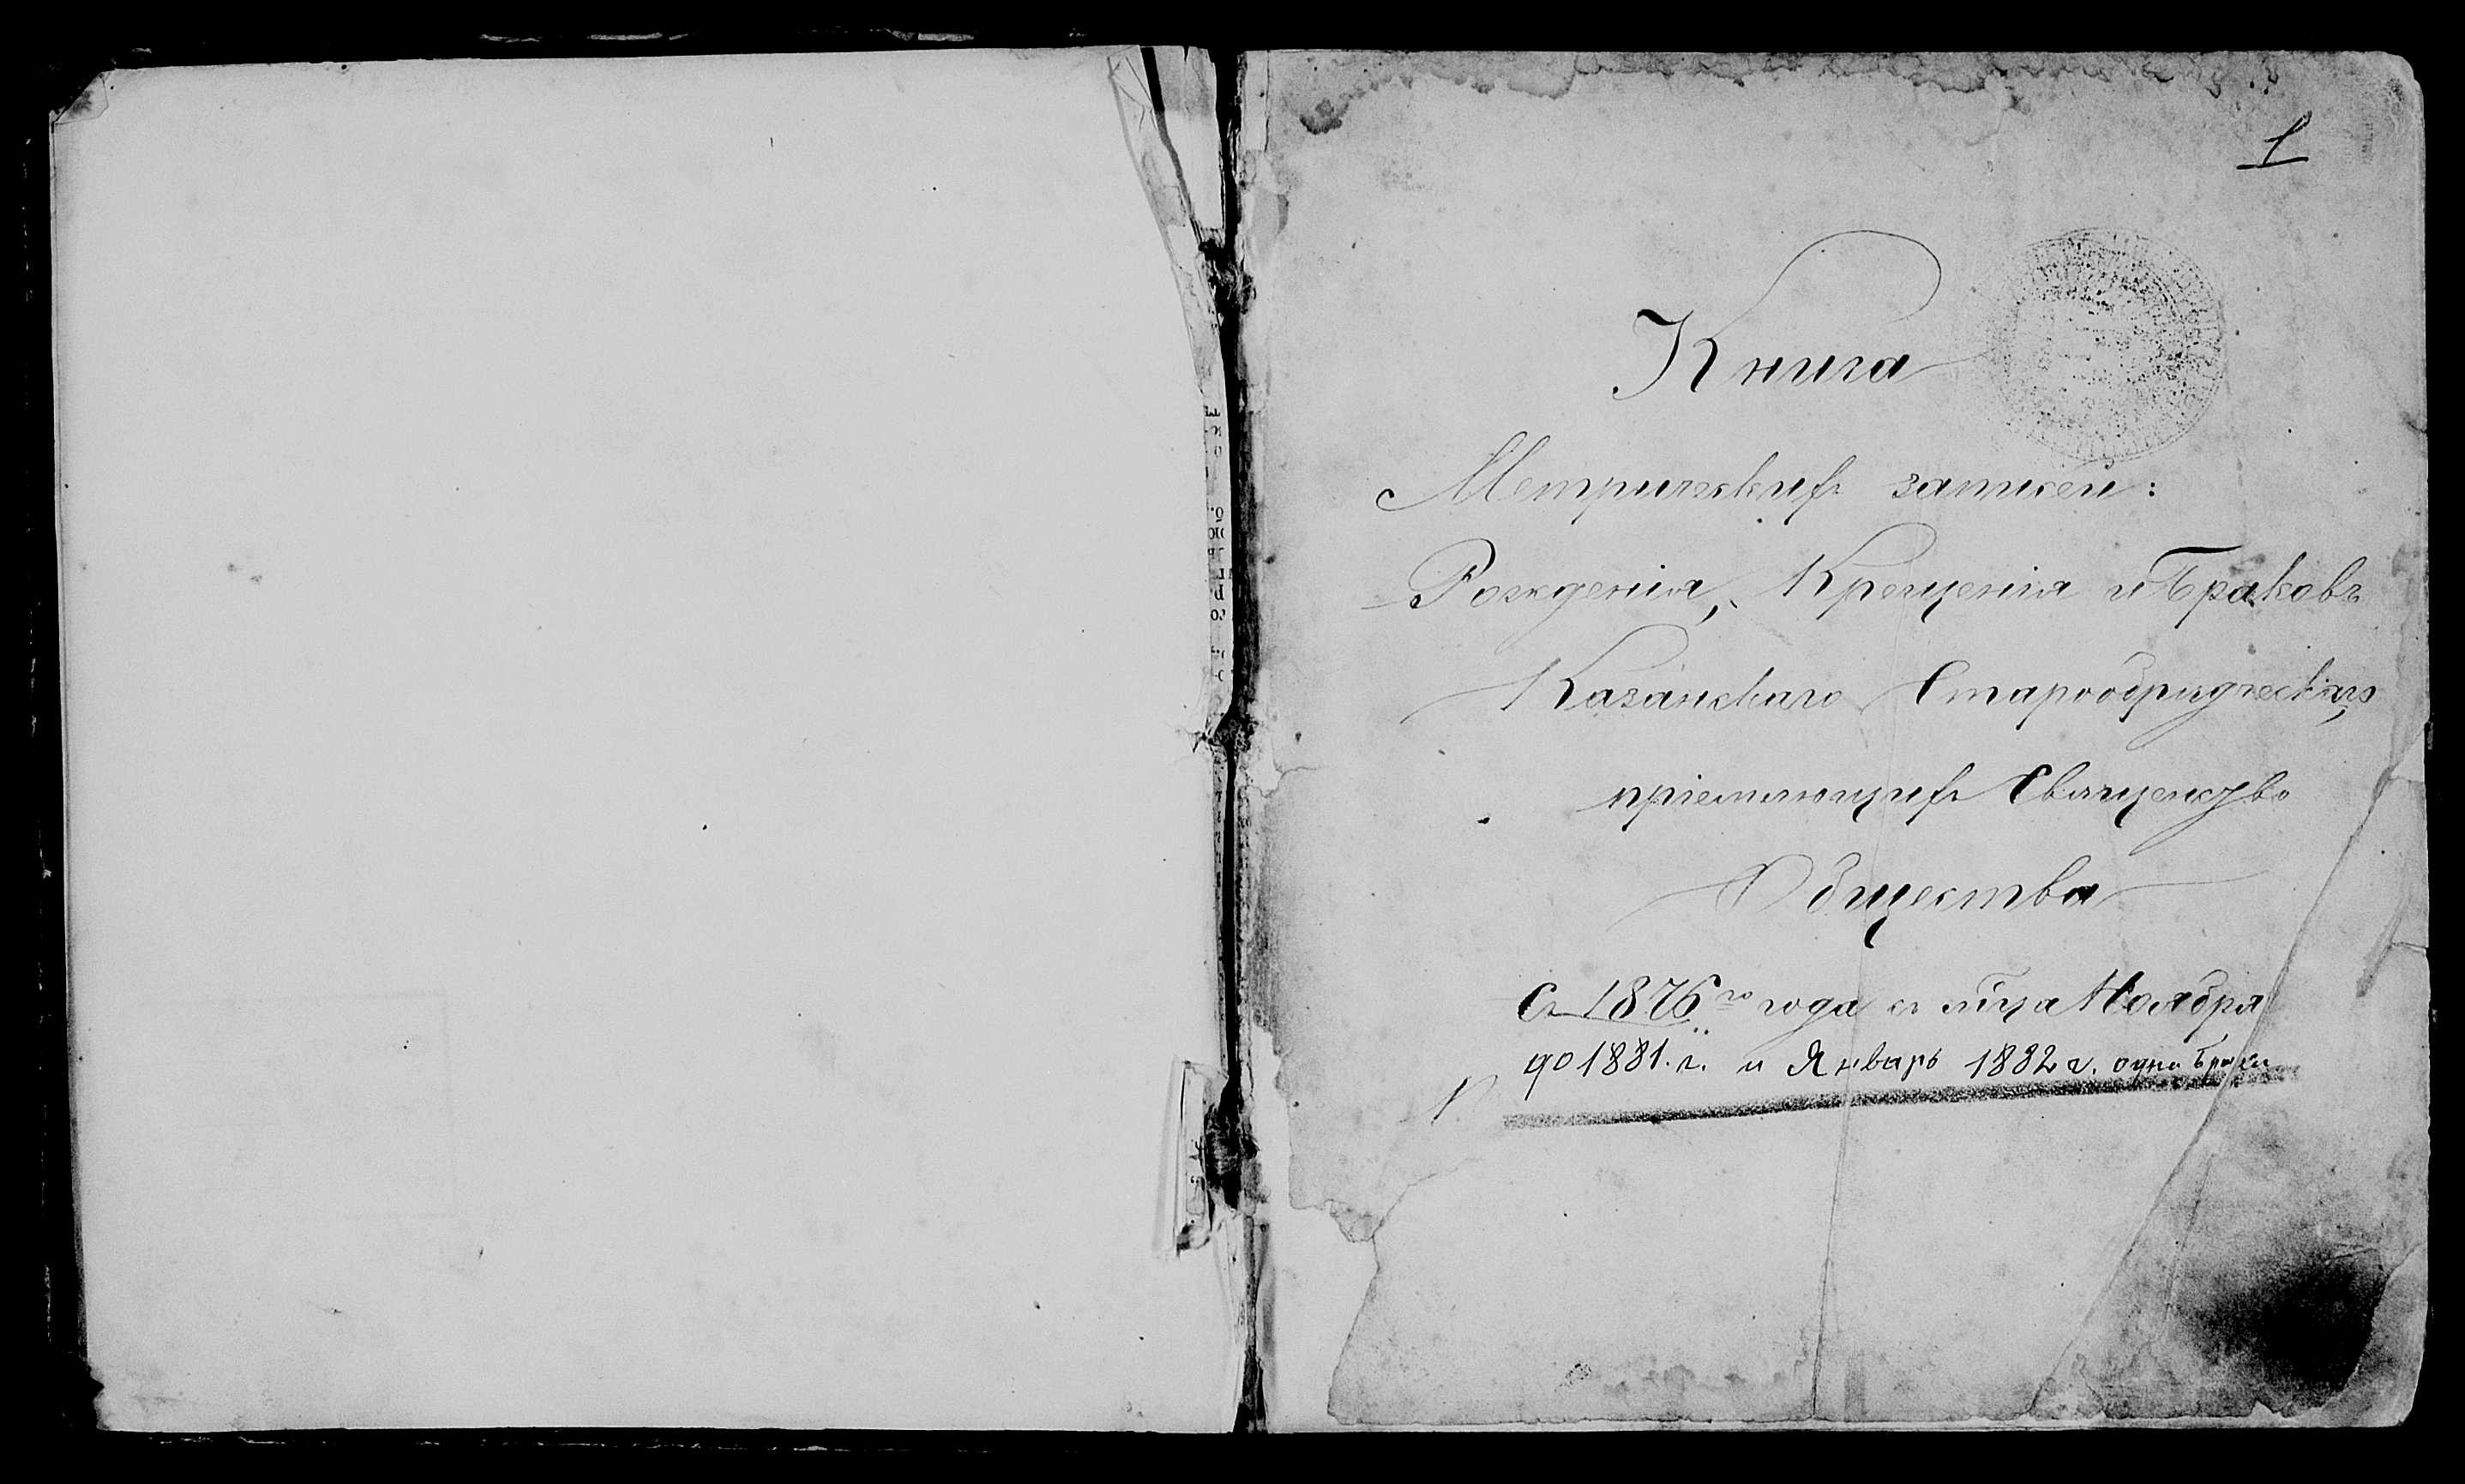 1
Книга
Метрическихъ записей:
Рожденія, Крещенія и Браковъ
Казанскаго Старообрядческаго
пріемлющихъ Священство
Общества
Съ 1876го года съ мца Ноября
до 1881. г. и Январь 1882 г. одни браки